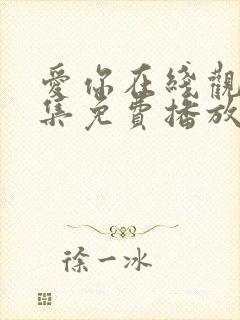 愛你在綫觀
集免費播放
徐一冰